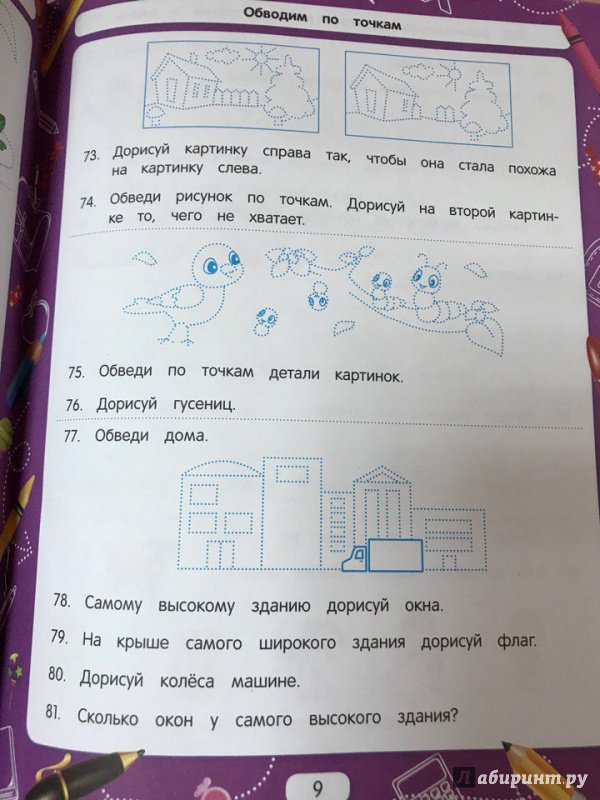 Обводим по точкам
73. Дорисуй картинку справа так, чтобы она стала похожа
на картинку слева.
74. Обведи рисунок по точкам. Дорисуй на второй картин-
ке то, чего не хватает.
75. Обведи по точкам детали картинок.
76. Дорисуй гусениц.
77. Обведи дома.
78. Самому высокому зданию дорисуй окна.
79. На крыше самого широкого здания дорисуй флаг.
80. Дорисуй колёса машине.
81. Сколько окон у самого высокого здания?
9
Лабиринт.ру